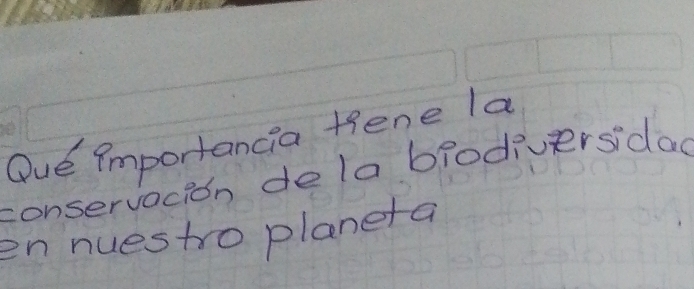 Qué importancia tiene la
conservación de la biodiversidad
en nuestro planeta